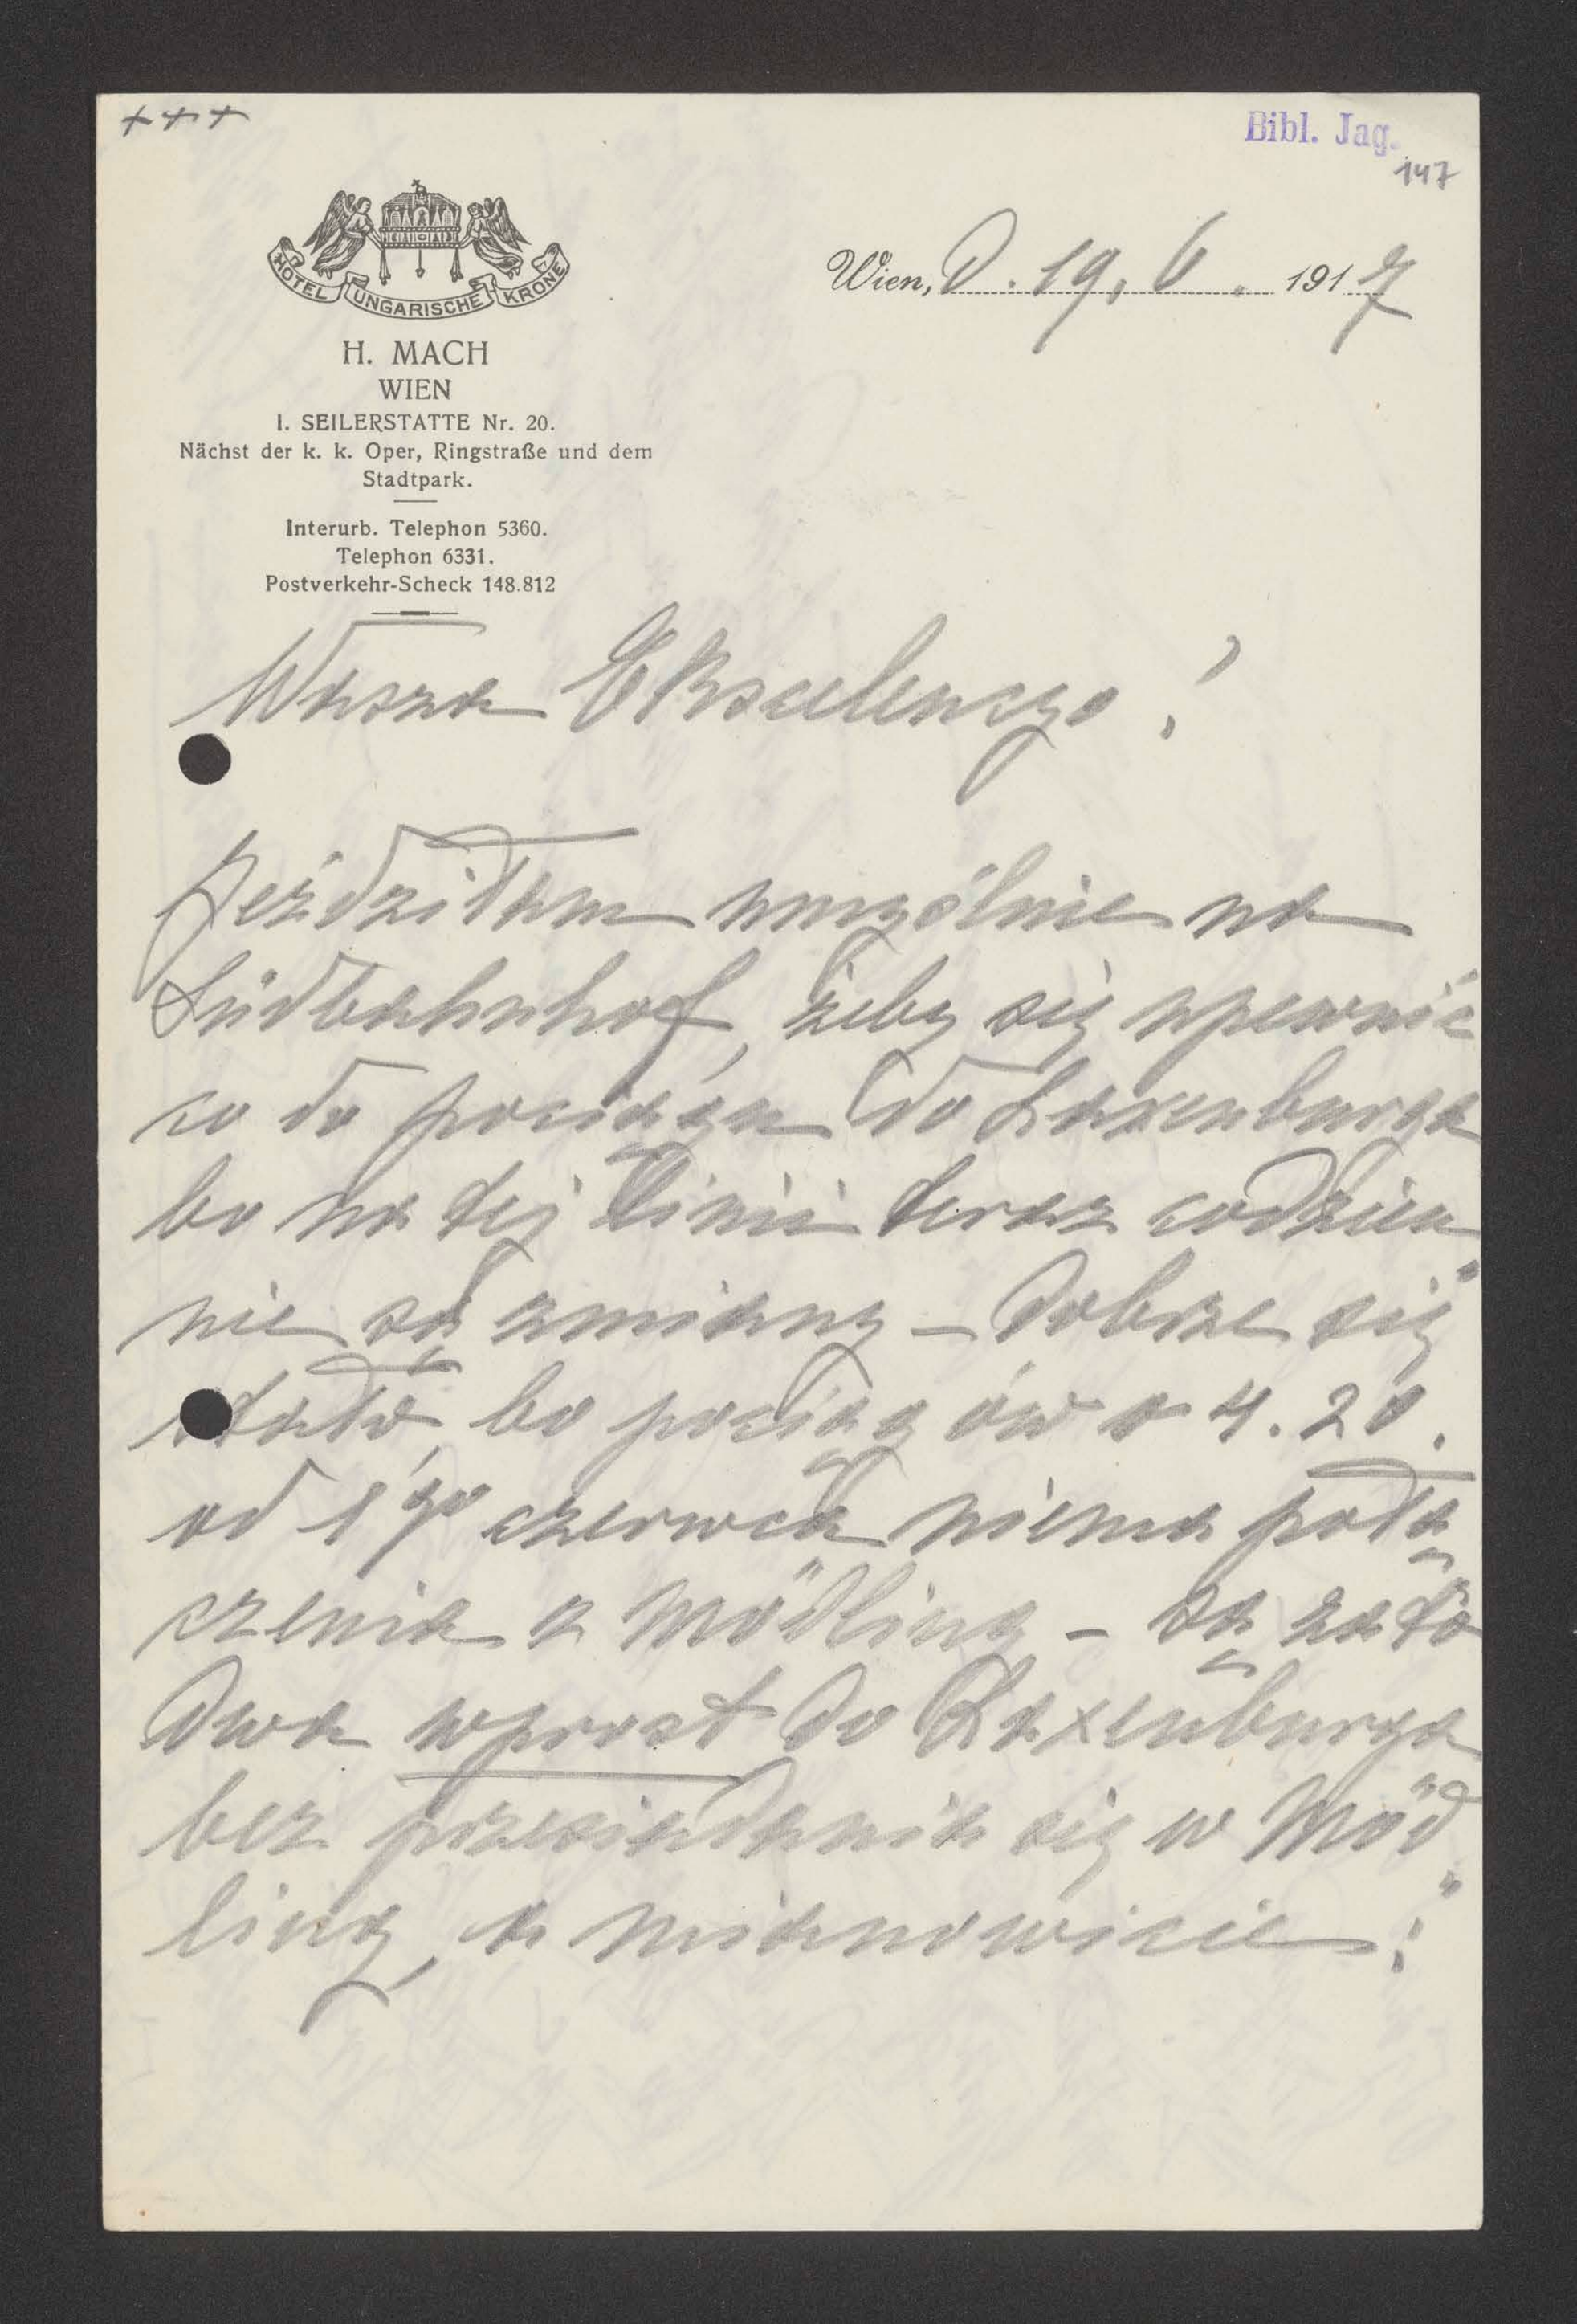 +++
Bibl. Jag.
147
HOTEL UNGARISCHE KRONE
Wien, D. 19. 6. 1917
H. MACH
WIEN
I. SEILERSTATTE Nr. 20.
Nächst der k. k. Oper, Ringstraße und dem
Stadtpark.
Interurb. Telephon 5360.
Telephon 6331.
Postverkehr-Scheck 148.812
Wasza Ekscelencyo!
Jeździłam umyślnie na
Südbahnhof, żeby się upewnić
co do pociągu do Laxenburga
bo na tej linii teraz codzien„
nie są zmiany – Dobrze się
stało, bo pociąg ów o 4.20.
od 1go czerwca niema połą„
czenia z Mödling – są zato
dwa wprost do Laxenburga
bez przesiadania się w Möd„
ling, a mianowicie: